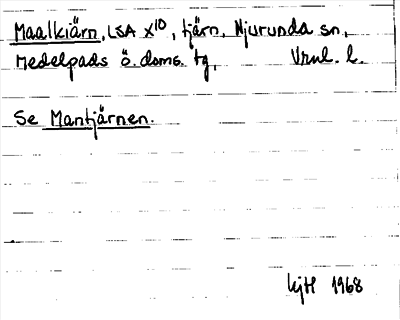 Maalkiärn, LSA X¹⁰, tjärn, Njurunda sn,
Medelpads ö. doms. tg, Vrnl. l.
Se Mantjärnen.
1968